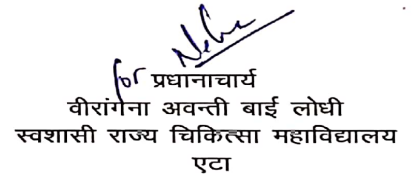 Neha
for प्रधानाचार्य
वीरांगना अवन्ती बाई लोधी
स्वशासी राज्य चिकित्सा महाविद्यालय
एटा